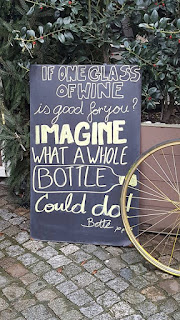 IF ONE GLASS
OF WINE
is good for you?
IMAGINE
WHAT A WHOLE
BOTTLE
Could do!